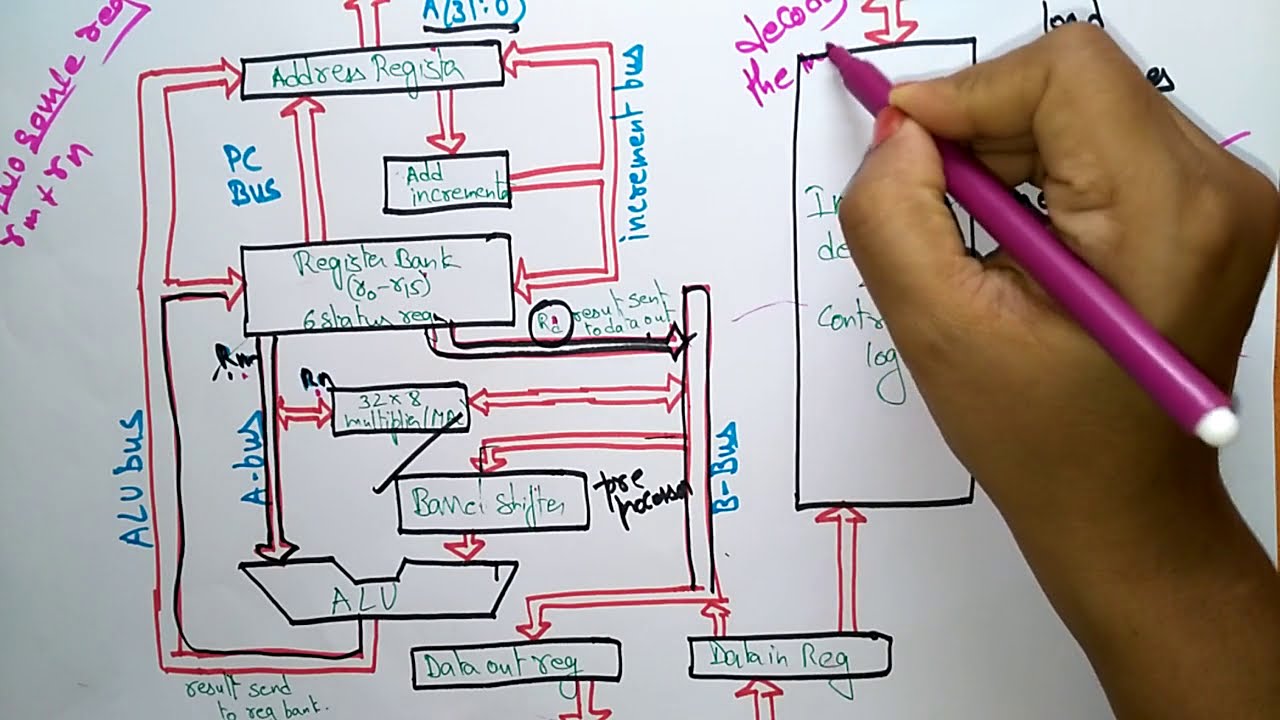 source reg
rm & rn
A(31:0)
Address Registe
PC
BUS
Add
increment
increment bus
Register Bank
(r0-r15)
6 status reg
Rd
result sent
to data out
Rm
Rn
32x8
multiplier/MA
ALU bus
A-bus
B-Bus
Barrel Shifter
pre
processor
ALU
Data out reg
Data in Reg
result send
to reg bank.
the
In
de
Contr
log
load